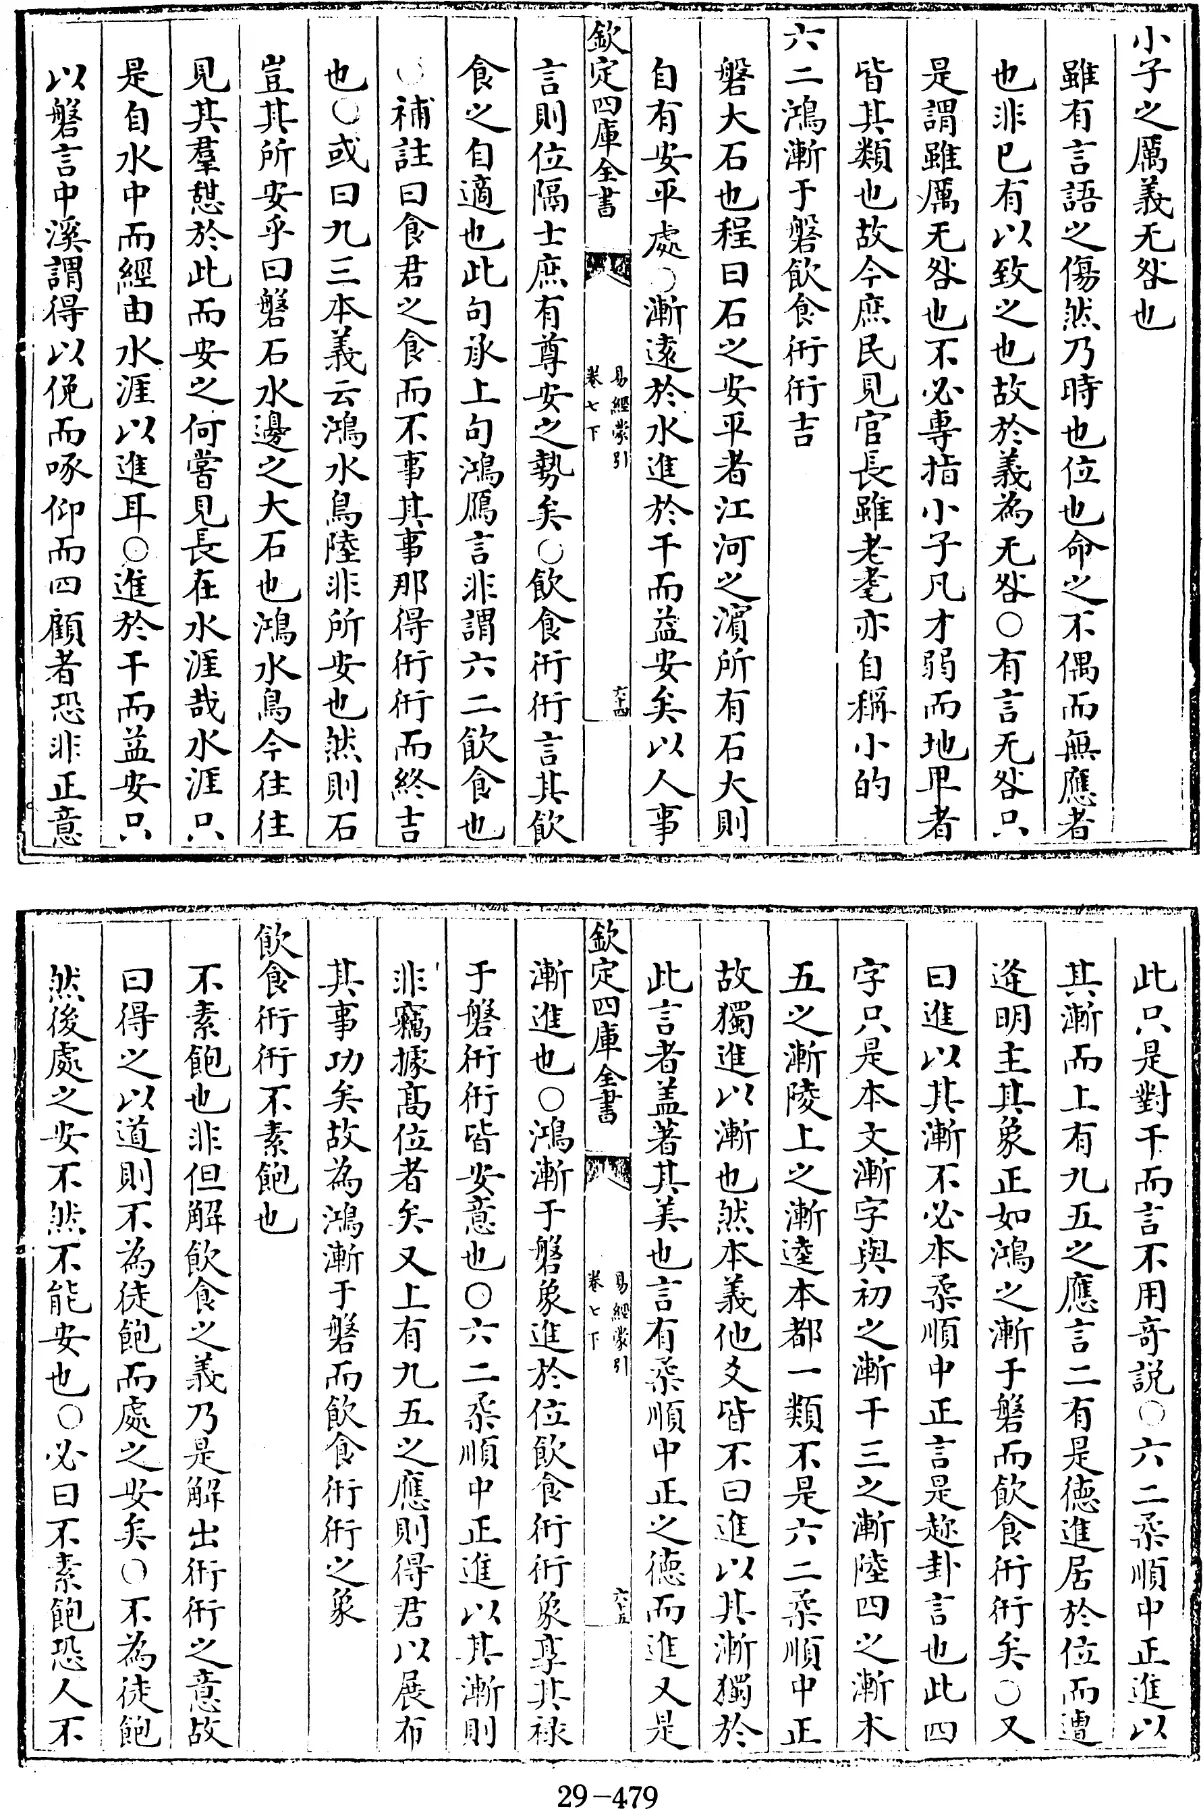 小子之厲義无咎也
雖有言語之傷然乃時也位也命之不偶而無應者
也非已有以致之也故於義為无咎○有言无咎只
是謂雖厲无咎也不必專指小子凡才弱而地卑者
皆其類也故今庶民見官長雖老耄亦自稱小的
六二鴻漸于磐飲食衎衎吉
磐大石也程曰石之安平者江河之濱所有石大則
自有安平處○漸遠於水進於干而益安矣以人事
欽定四庫全書
易經蒙引
卷七下
六十四
言則位隔士庶有尊安之勢矣○飲食衎衎言其飲
食之自適也此句承上句鴻鴈言非謂六二飲食也
○補註曰食君之食而不事其事那得衎衎而終吉
也○或曰九三本義云鴻水鳥陸非所安也然則石
豈其所安乎曰磐石水邊之大石也鴻水鳥今往往
見其羣憩於此而安之何嘗見長在水涯哉水涯只
是自水中而經由水涯以進耳○進於干而益安只
以磐言中溪謂得以俛而啄仰而四顧者恐非正意
此只是對干而言不用奇説○六二柔順中正進以
其漸而上有九五之應言二有是德進居於位而遭
逄明主其象正如鴻之漸于磐而飲食衎衎矣○又
曰進以其漸不必本柔順中正言是趂卦言也此四
字只是本文漸字與初之漸干三之漸陸四之漸木
五之漸陵上之漸逵本都一類不是六二柔順中正
故獨進以漸也然本義他爻皆不曰進以其漸獨於
此言者盖著其美也言有柔順中正之德而進又是
欽定四庫全書
易經蒙引
卷七下
六十五
漸進也○鴻漸于磐象進於位飲食衎衎象享其禄
于磐衎衎皆安意也○六二柔順中正進以其漸則
非竊據高位者矣又上有九五之應則得君以展布
其事功矣故為鴻漸于磐而飲食衎衎之象
飲食衎衎不素飽也
不素飽也非但解飲食之義乃是解出衎衎之意故
曰得之以道則不為徒飽而處之安矣○不為徒飽
然後處之安不然不能安也○必曰不素飽恐人不
29-479